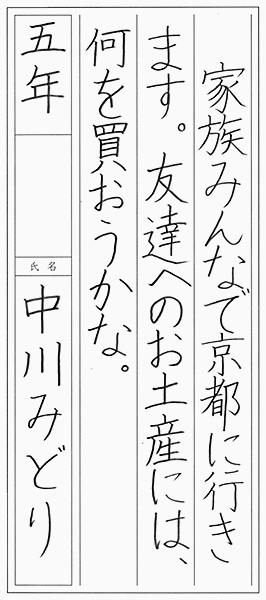 家族みんなで京都に行き
ます。友達へのお土産には、
何を買おうかな。
五年
氏名
中川みどり